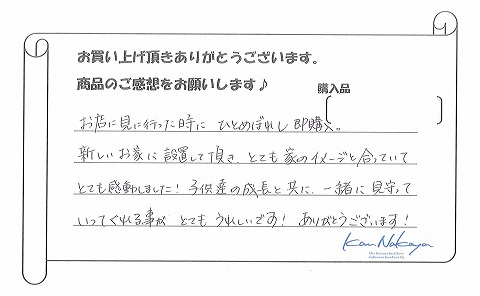 お買い上げ頂きありがとうございます。
商品のご感想をお願いします♪
購入品
お店に見に行った時に ひとめぼれし即購入。
新しいお家に設置して頂き、とても家のイメージと合っていて
とても感動しました！子供達の成長と共に、一緒に見守って
いってくれる事が とても うれしいです！ ありがとうございます！
Kan Nakaya